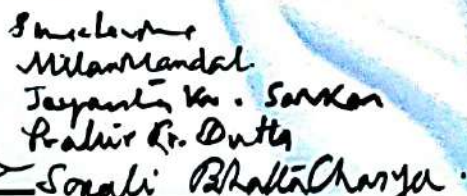 Milan Mandal
Jayanta Kr. Sarkar
Prabir Kr. Dutta
Sonali Bhattacharya.